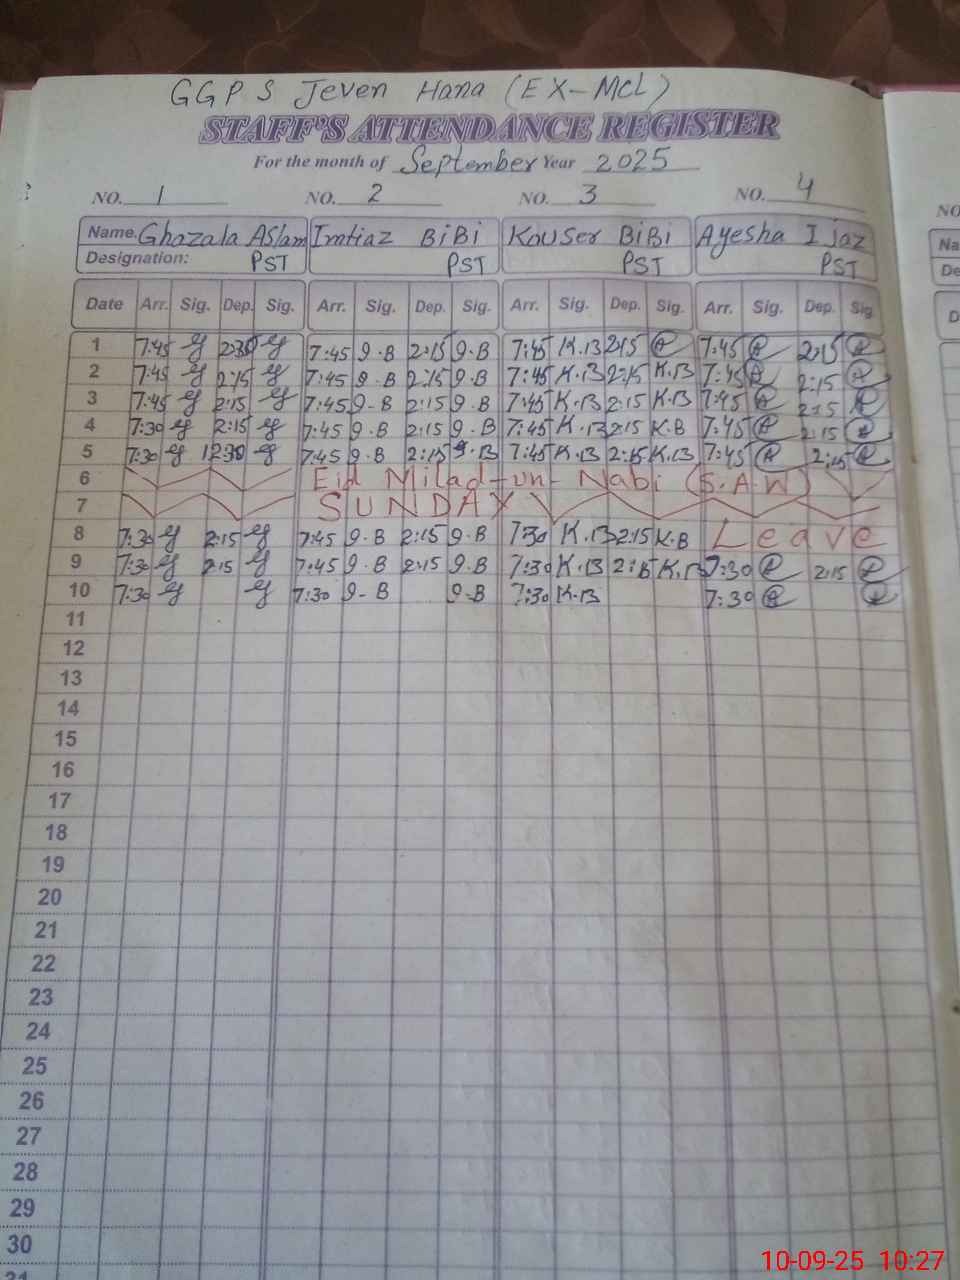 GGPS Jeven Hana (EX-MCL)
STAFF'S ATTENDANCE REGISTER
For the month of September Year 2025
NO. 1 NO. 2 NO. 3 NO. 4
Name. Ghazala Aslam Imtiaz BiBi Kouser BiBi Ayesha Ijaz
Designation: PST PST PST PST
Date Arr. Sig. Dep. Sig. Arr. Sig. Dep. Sig. Arr. Sig. Dep. Sig. Arr. Sig. Dep. Sig
1 7:45 2:30 7:45 9.B 2:15 9.B 7:45 K.B 2:15 7:45 2:15
2 7:45 2:15 7:45 9.B 2:15 9.B 7:45 K.B 2:15 K.B 7:45 2:15
3 7:45 2:15 7:45 9-B 2:15 9.B 7:45 K.B 2:15 K.B 7:45 2:15
4 7:30 2:15 7:45 9.B 2:15 9.B 7:45 K.B 2:15 K.B 7:45 2:15
5 7:30 12:30 7:45 9.B 2:15 9.B 7:45 K.B 2:15 K.B 7:45 2:15
6 Eid Milad-un-Nabi (S.A.W)
7 SUNDAY
8 7:30 2:15 7:45 9.B 2:15 9.B 7:30 K.B 2:15 K.B Leave
9 7:30 2:15 7:45 9.B 2:15 9.B 7:30 K.B 2:15 K.B 7:30 2:15
10 7:30 7:30 9-B 9-B 7:30 K.B 7:30
11
12
13
14
15
16
17
18
19
20
21
22
23
24
25
26
27
28
29
30
31
NO
Na
De
D
10-09-25 10:27